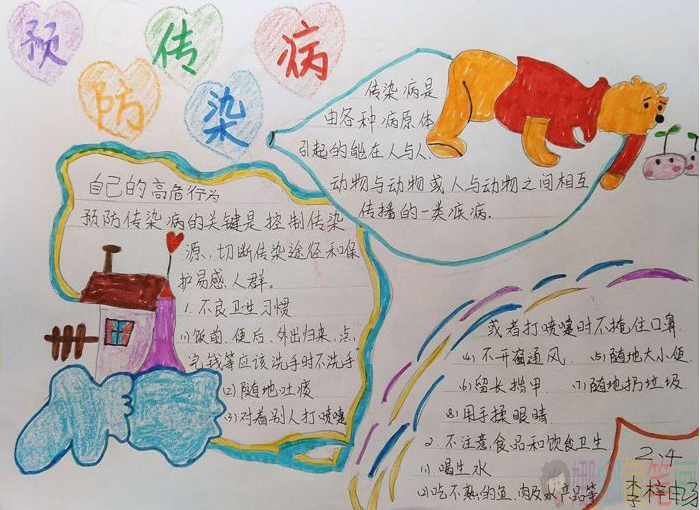 预防传染病
传染病是
由各种病原体
引起的能在人与人、
动物与动物或人与动物之间相互
传播的一类疾病.
自己的高危行为
预防传染病的关键是控制传染
源、切断传染途径和保
护易感人群。
1.不良卫生习惯
(1)饭前、便后、外出归来、点
完钱等应该洗手时不洗手
(2)随地吐痰
(3)对着别人打喷嚏
或者打喷嚏时不掩住口鼻
(4)不开窗通风 (5)随地大小便
(6)留长指甲 (7)随地扔垃圾
(8)用手揉眼睛.
2.不注意食品和饮食卫生
(1)喝生水
(2)吃不熟的鱼、肉及水产品等
2.4
李梓